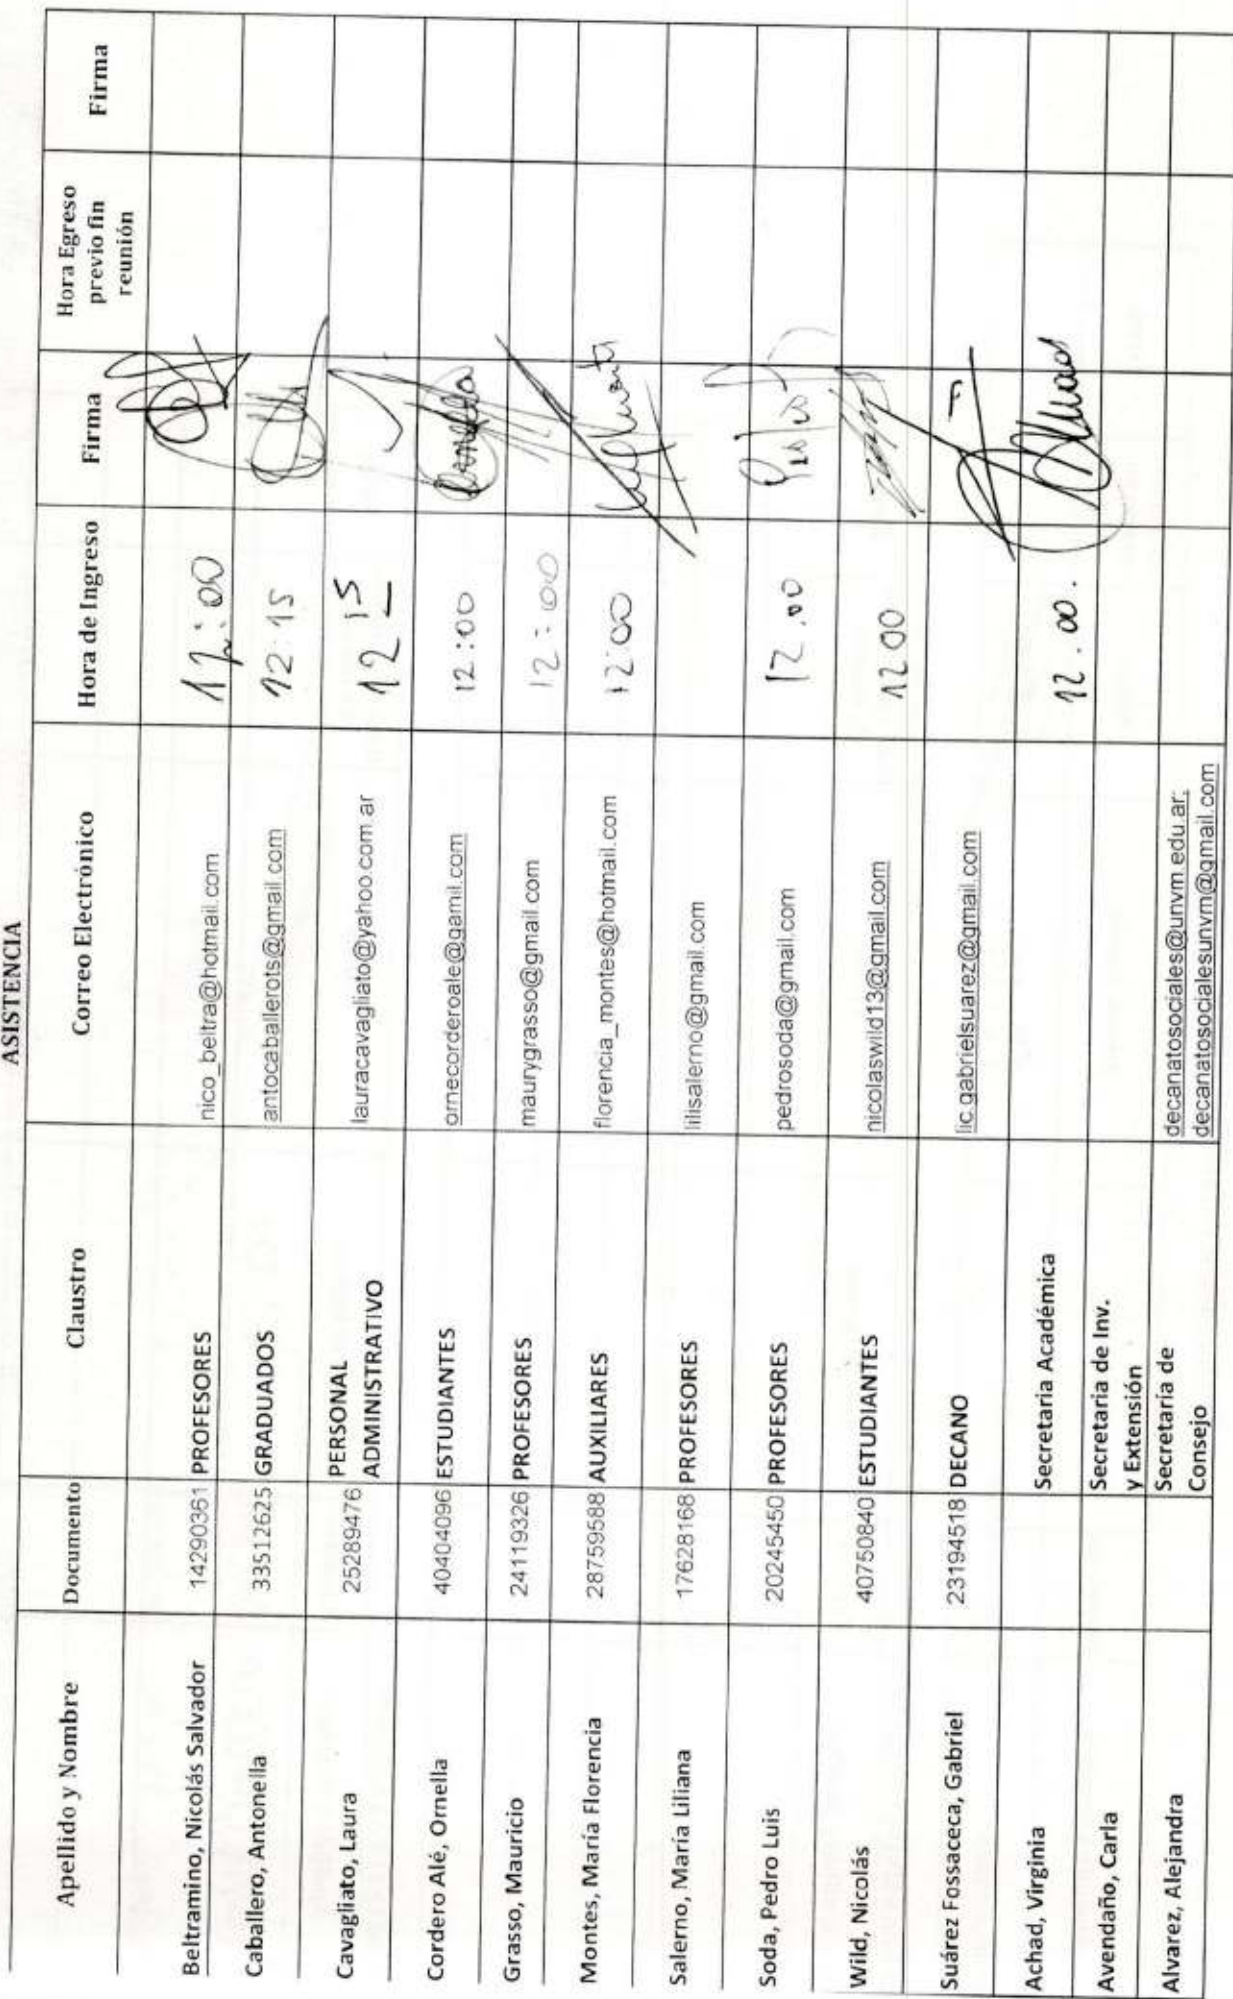 ASISTENCIA
Apellido y Nombre Documento Claustro Correo Electrónico Hora de Ingreso Firma Hora Egreso previo fin reunión Firma
Beltramino, Nicolás Salvador 14290361 PROFESORES nico_beltra@hotmail.com 12:00
Caballero, Antonella 33512625 GRADUADOS antocaballerots@gmail.com 12:15
Cavagliato, Laura 25289476 PERSONAL ADMINISTRATIVO lauracavagliato@yahoo.com.ar 12 15
Cordero Alé, Ornella 40404096 ESTUDIANTES ornecorderoale@gamil.com 12:00 Ornella
Grasso, Mauricio 24119326 PROFESORES maurygrasso@gmail.com 12:00
Montes, María Florencia 28759588 AUXILIARES florencia_montes@hotmail.com 12:00
Salerno, María Liliana 17628168 PROFESORES lilisalerno@gmail.com
Soda, Pedro Luis 20245450 PROFESORES pedrosoda@gmail.com 12.00
Wild, Nicolás 40750840 ESTUDIANTES nicolaswild13@gmail.com 12 00
Suárez Fossaceca, Gabriel 23194518 DECANO lic.gabrielsuarez@gmail.com
Achad, Virginia Secretaria Académica 12.00.
Avendaño, Carla Secretaria de Inv. y Extensión
Alvarez, Alejandra Secretaría de Consejo decanatosociales@unvm.edu.ar; decanatosocialesunvm@gmail.com